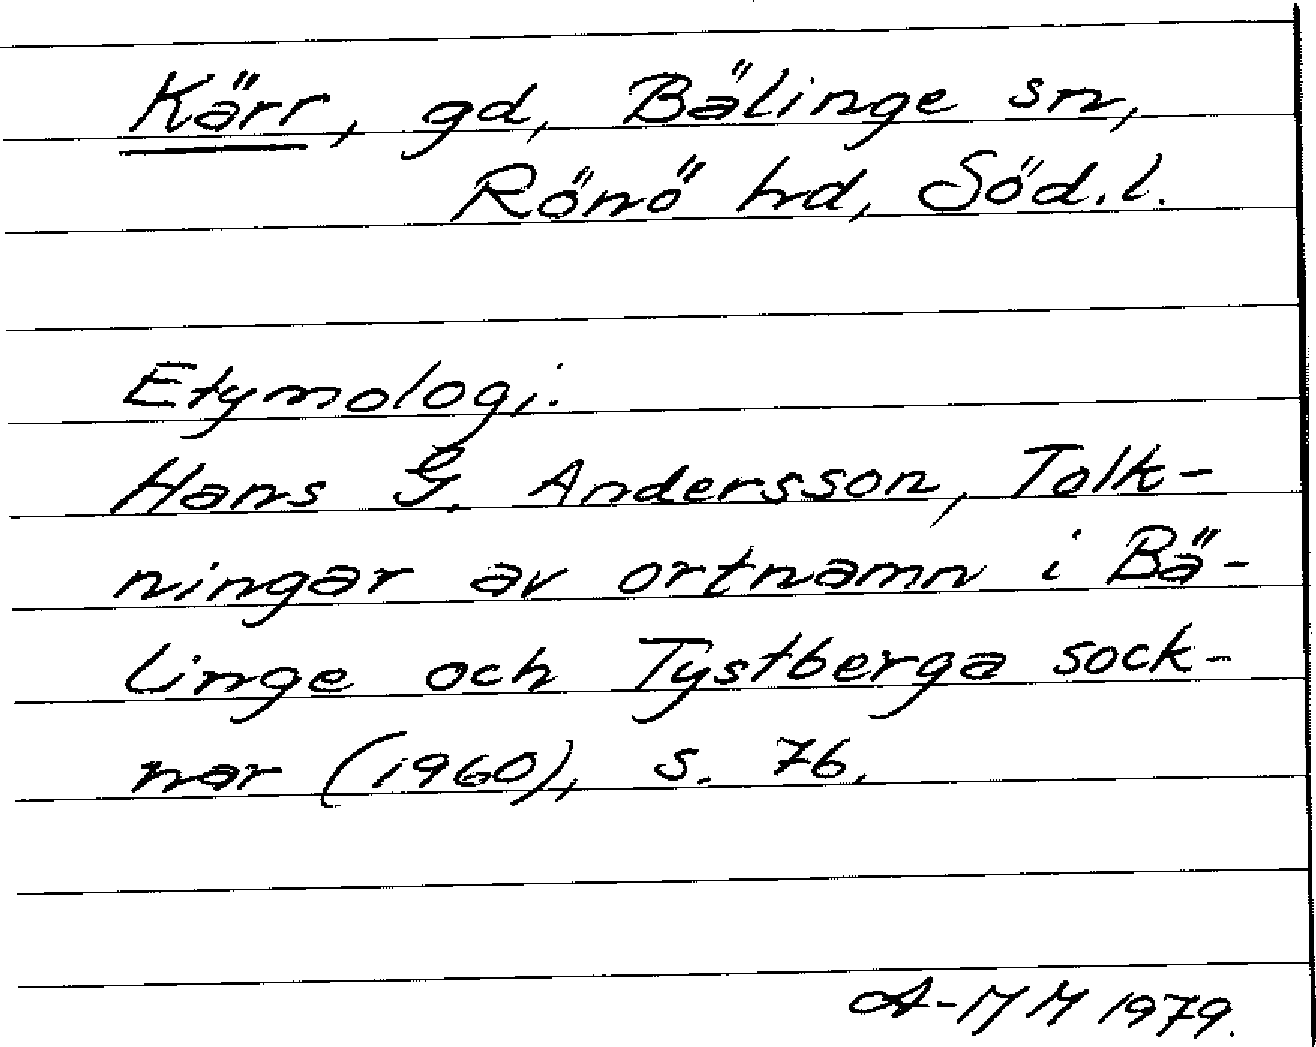 Kärr, gd, Bälinge sn,
Rönö hd, Söd.l.
Etymologi:
Hans G. Andersson, Tolk-
ningar av ortnamn i Bä-
linge och Tystberga sock-
nar (1960), s. 76.
A-MM 1979.